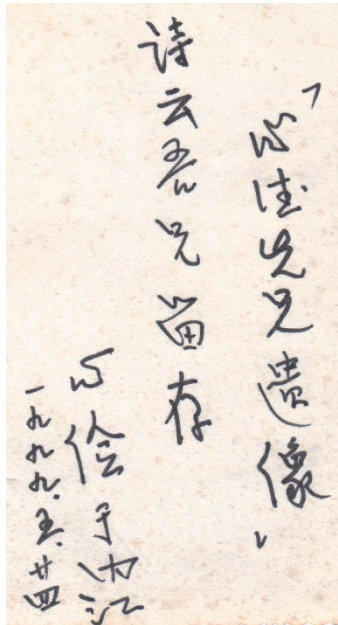 「心佳先兄遗像」
诗云吾兄留存
心俭于内江
一九九九.五.廿四